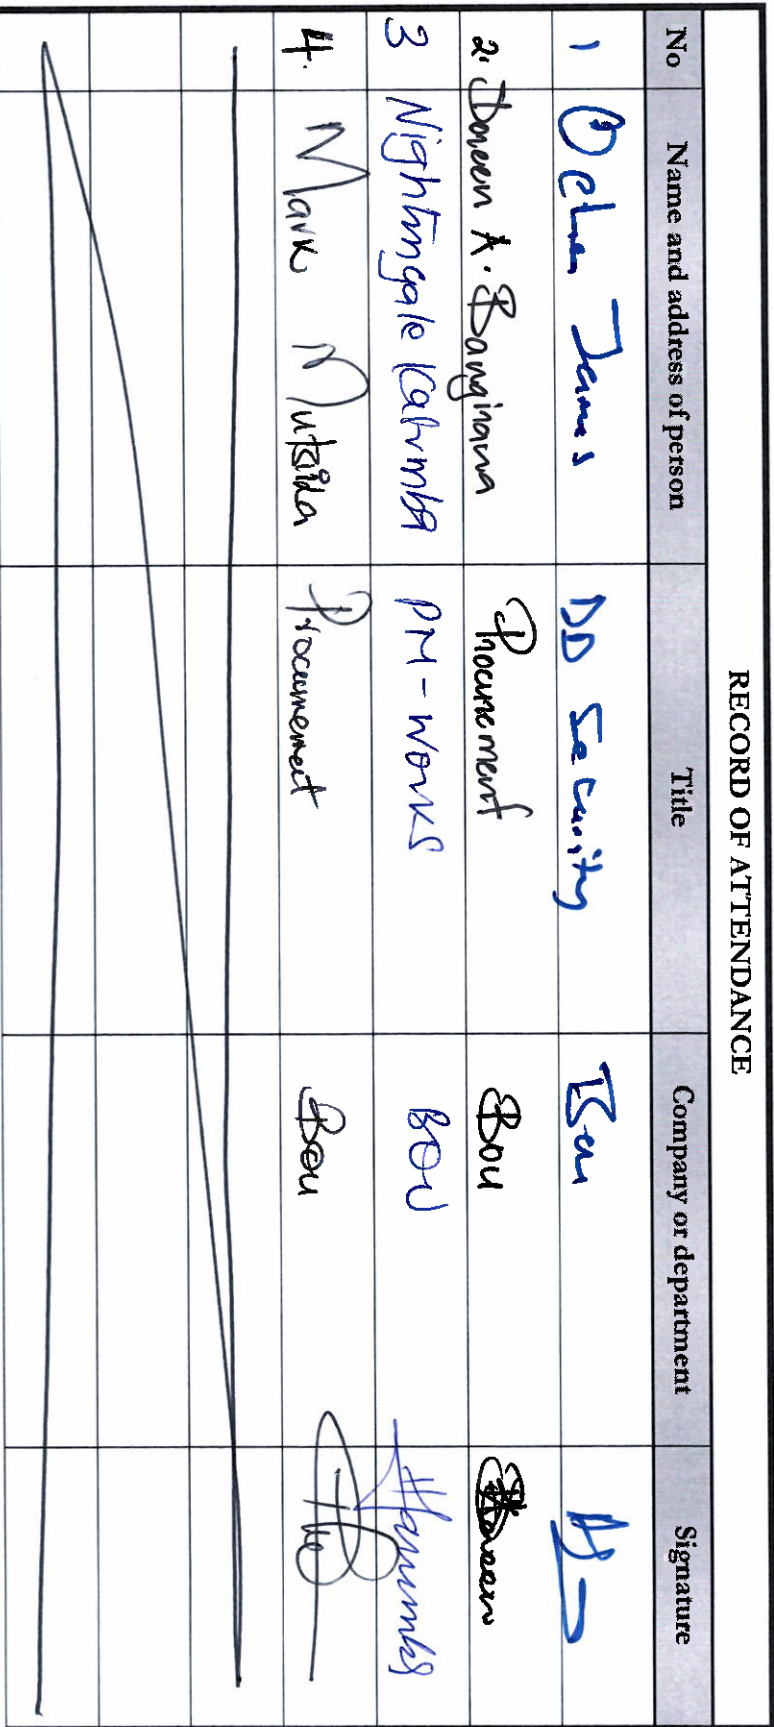 RECORD OF ATTENDANCE
No Name and address of person Title Company or department Signature
1 Ochen James DD Security Bou
2. Doreen A. Bangirana Procurement Bou
3 Nightingale Katumba PM-Works BOU
4. Mark Mutsida Procurement Bou